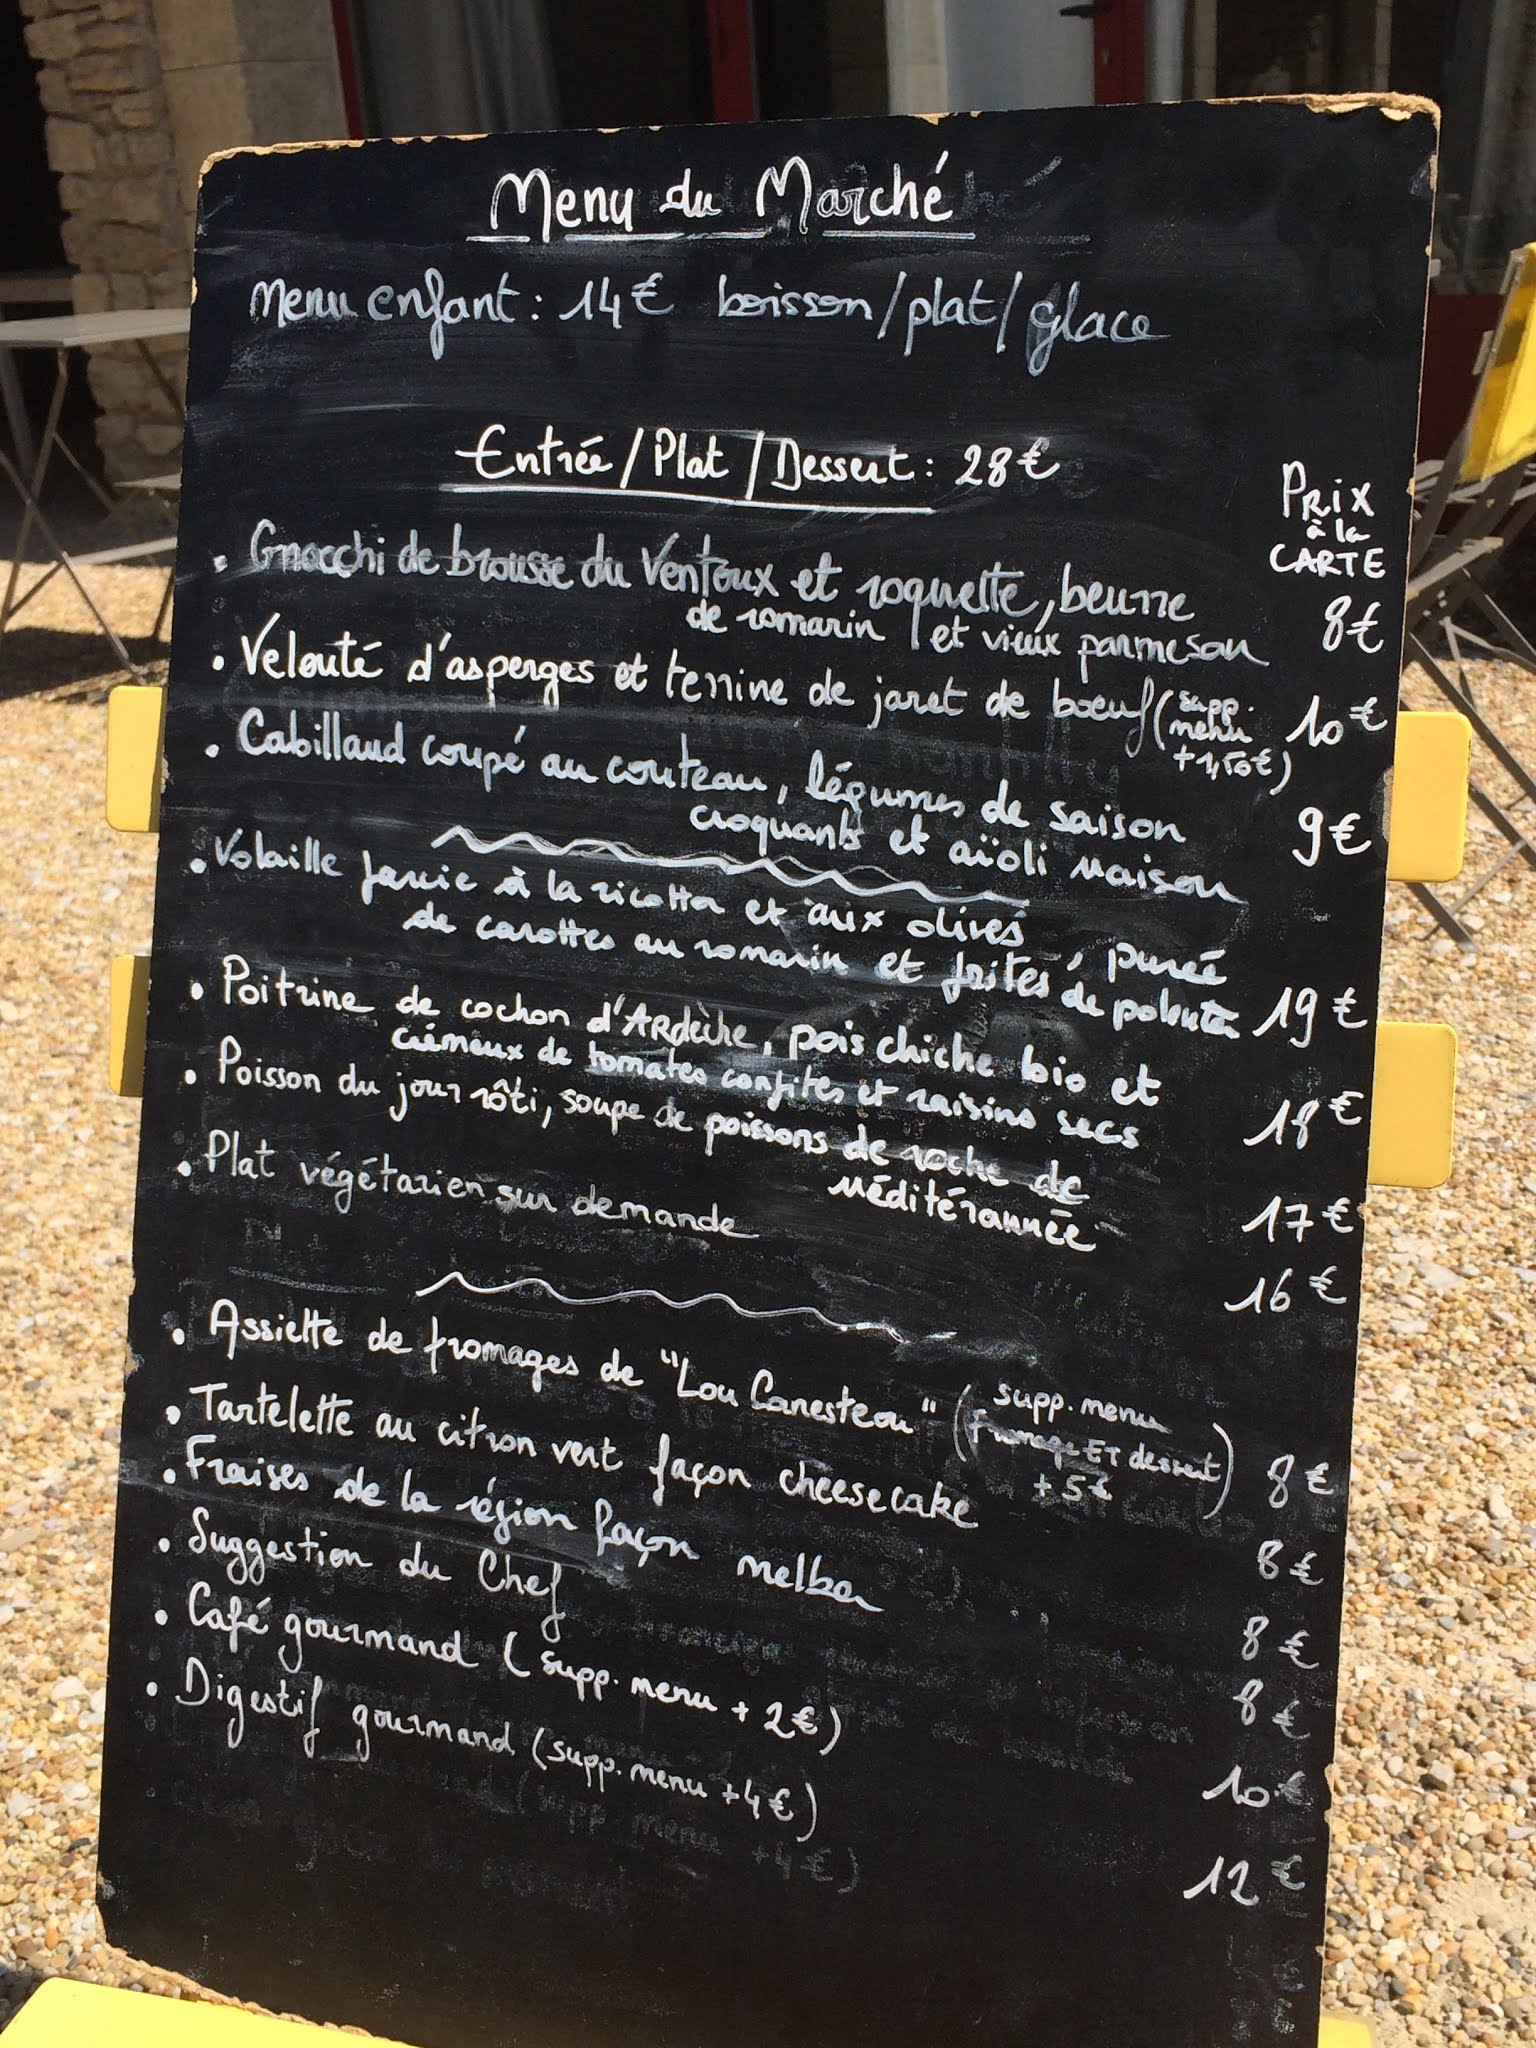 Menu du Marché
Menu enfant : 14€ boisson/plat/glace
Entrée/Plat/Dessert : 28€
PRIX
à la
CARTE
• Gnocchi de brousse du Ventoux et roquette, beurre
de romarin et vieux parmesan 8€
• Velouté d'asperges et terrine de jaret de boeuf (supp.
menu
+1,50€) 10€
• Cabillaud coupé au couteau, légumes de saison
croquants et aïoli maison 9€
• Volaille farcie à la ricotta et aux olives, purée
de carottes au romarin et frites de polenta 19€
• Poitrine de cochon d'Ardèche, pois chiche bio et
crémeux de tomates confites et raisins secs 18€
• Poisson du jour rôti, soupe de poissons de roche de
Méditérannée 17€
• Plat végétarien sur demande 16€
• Assiette de fromages de "Lou Canesteou" (supp. menu
fromage ET dessert
+5€) 8€
• Tartelette au citron vert façon cheesecake 8€
• Fraises de la région façon melba 8€
• Suggestion du Chef 8€
• Café gourmand (supp. menu + 2€) 10€
• Digestif gourmand (supp. menu +4€) 12€